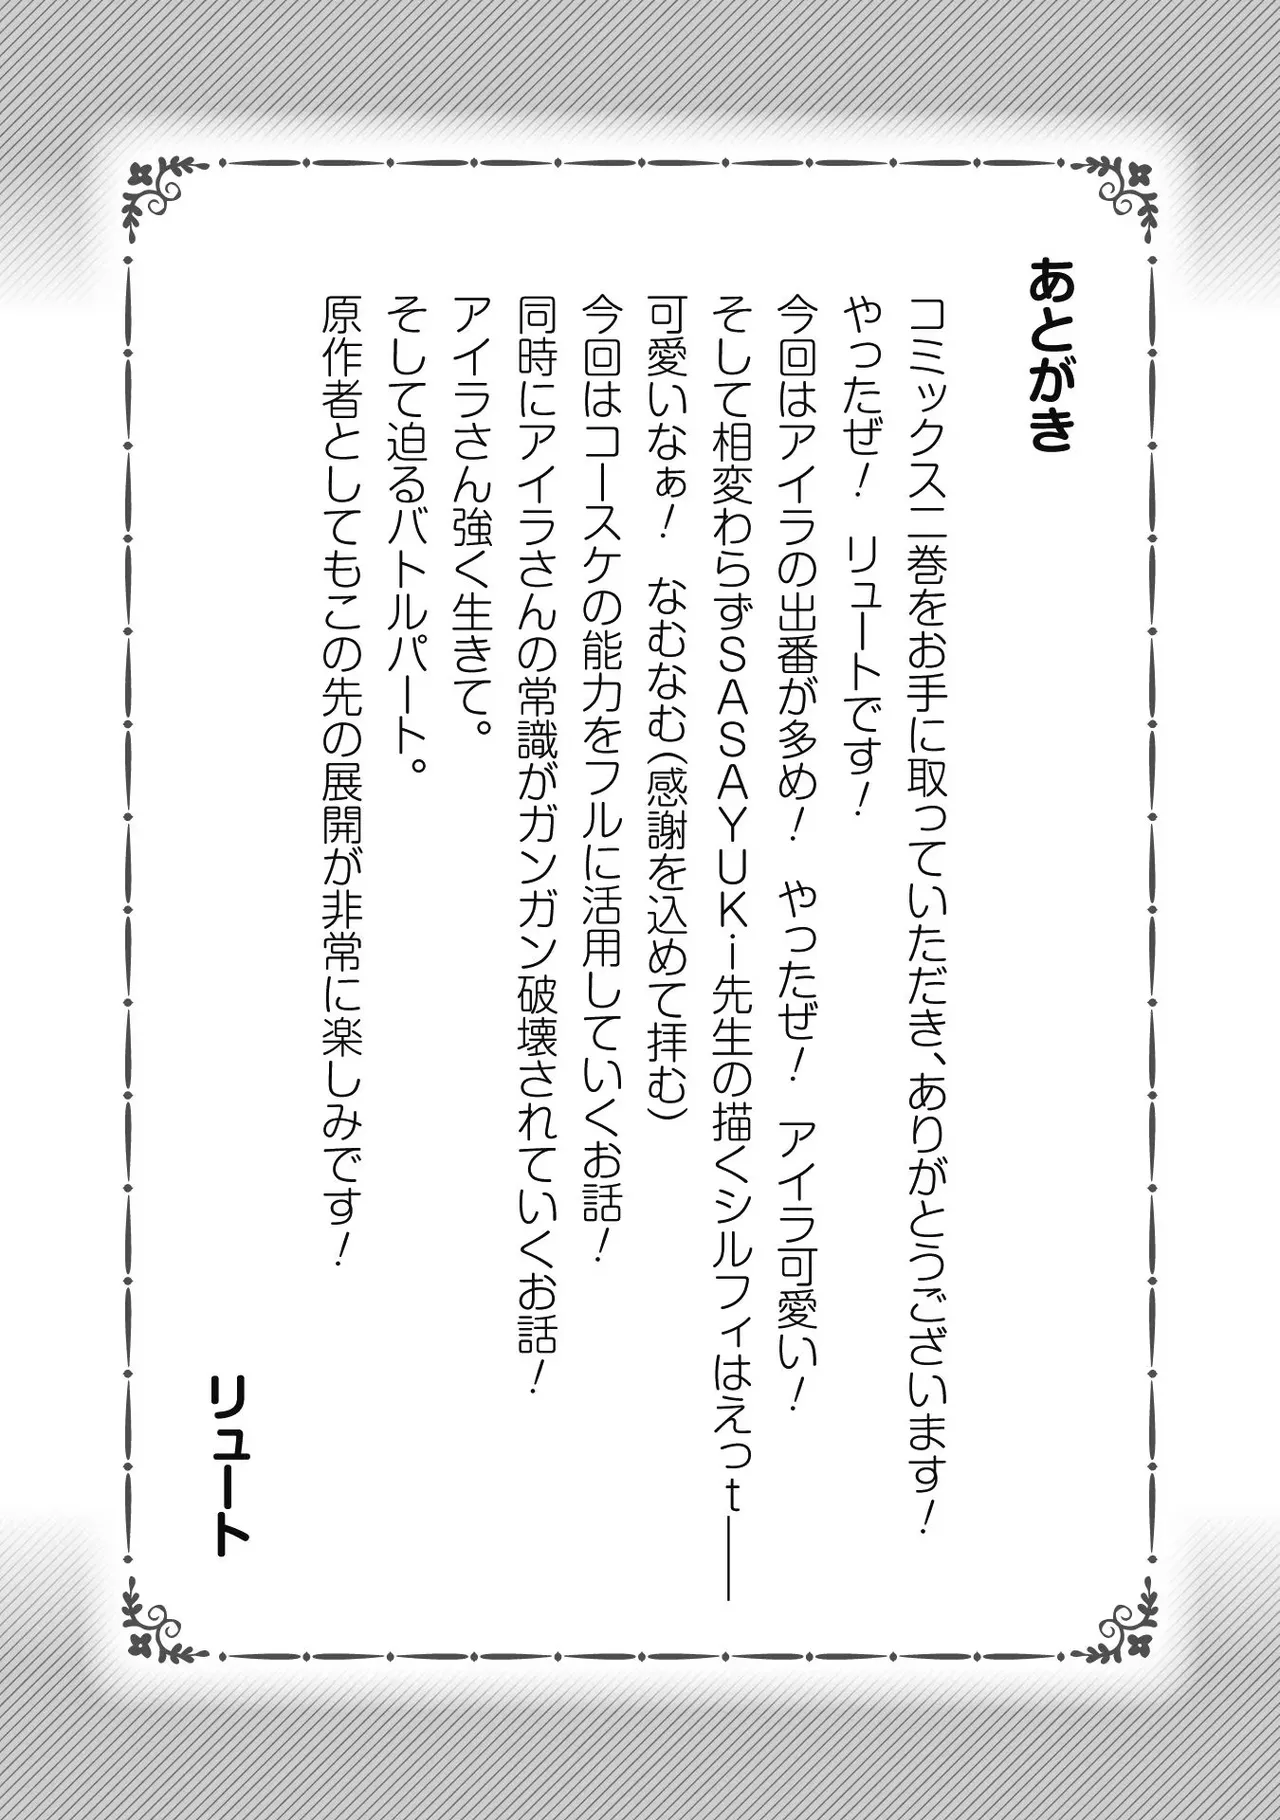 あとがき
コミックス二巻をお手に取っていただき、ありがとうございます！
やったぜ！　リュートです！
今回はアイラの出番が多め！　やったぜ！　アイラ可愛い！
そして相変わらずSASAYUKi先生の描くシルフィはえっt――
可愛いなぁ！　なむなむ（感謝を込めて拝む）
今回はコースケの能力をフルに活用していくお話！
同時にアイラさんの常識がガンガン破壊されていくお話！
アイラさん強く生きて。
そして迫るバトルパート。
原作者としてもこの先の展開が非常に楽しみです！
リュート